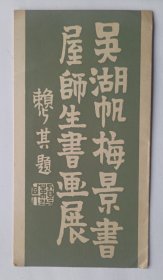 吴湖帆梅景書
屋師生書画展
赖少其題